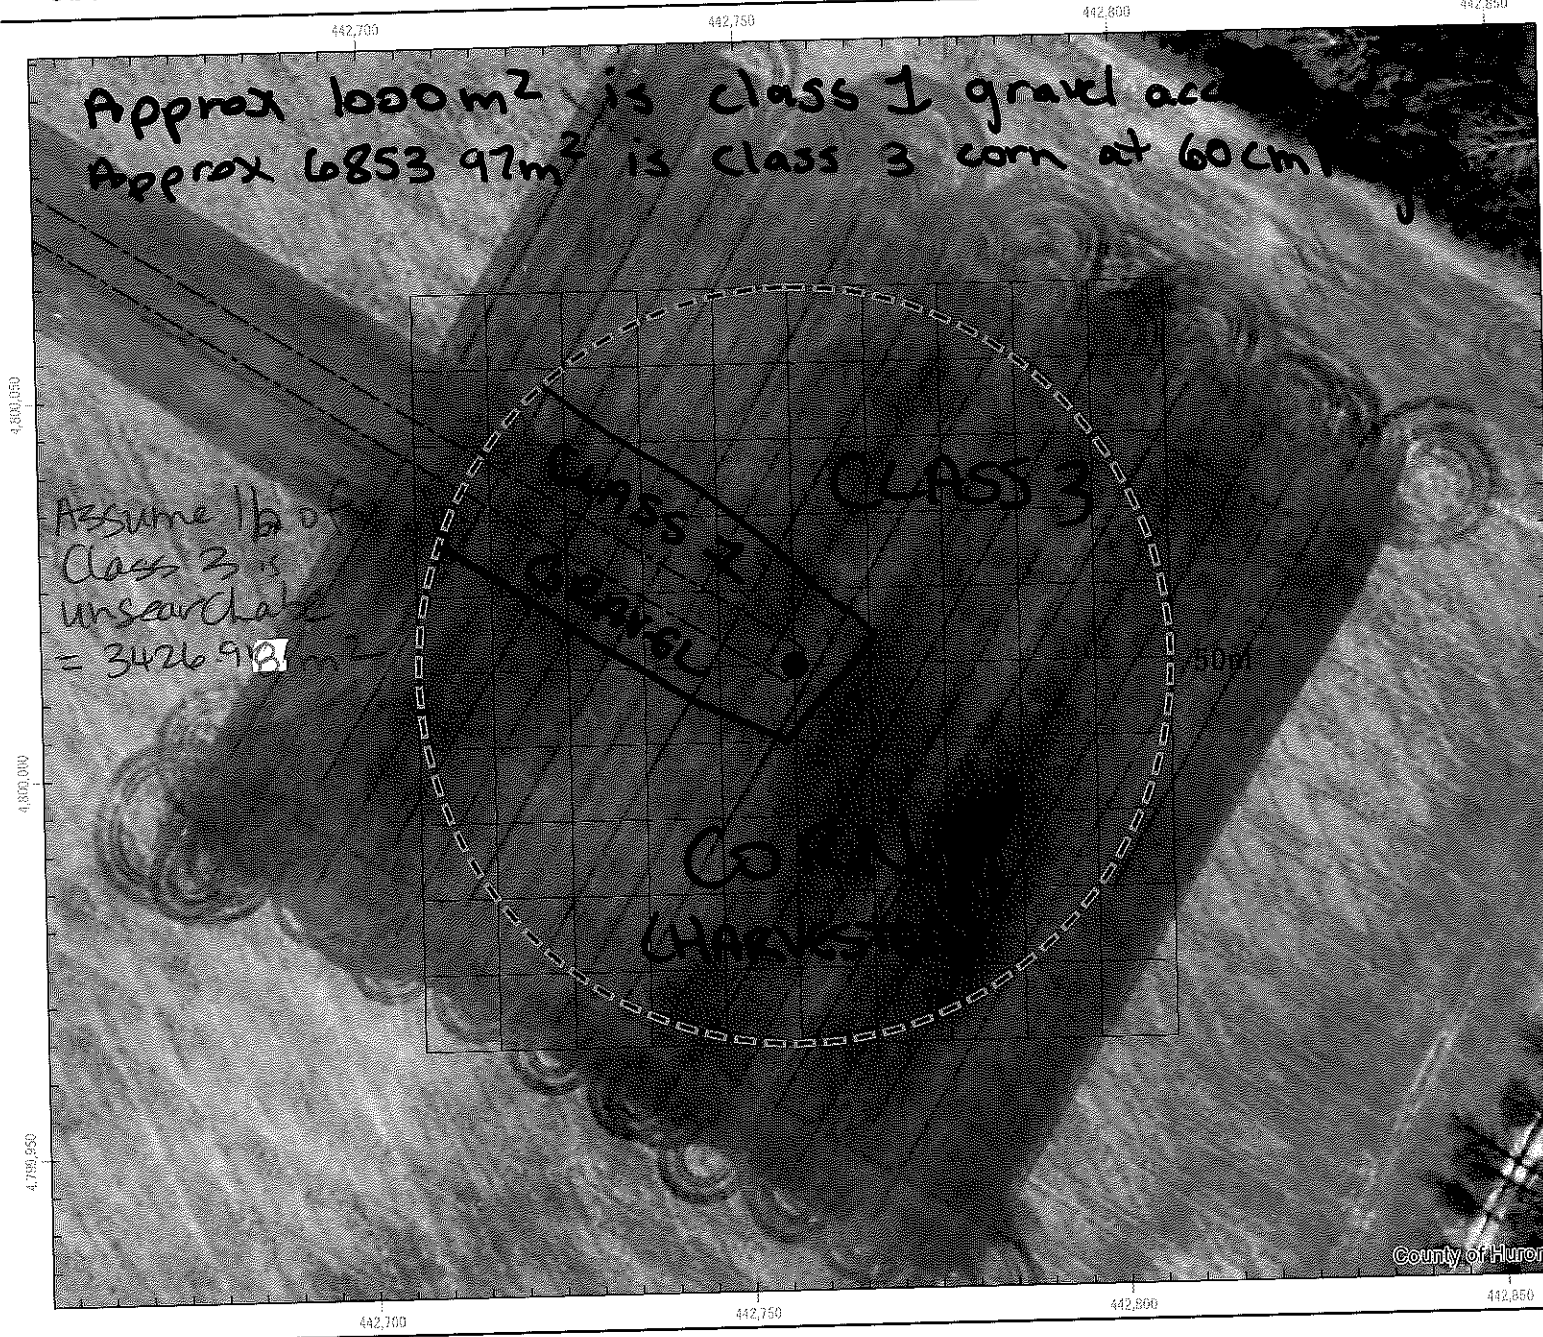 442,700
442,750
442,800
442,850
Approx 1000m² is class 1 gravel acc
Approx 6853 97m² is class 3 corn at 60cm
4,800,050
CLASS
CLASS 3
Assume 1/2 of
Class 3 is
unsearchable
= 3426.98 m²
GRAVEL
50m
4,800,000
CORN
(HARVESTED
4,799,950
County of Huron
442,700
442,750
442,800
442,850